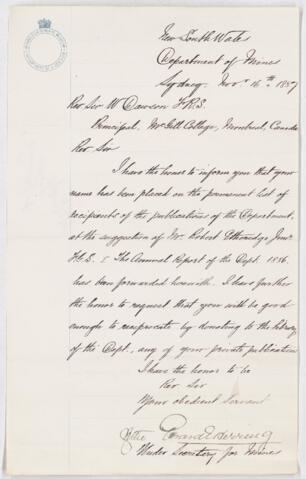 New South Wales
Department of Mines
Sydney. Nov. 16th 1887
Rev Sir W Dawson F.R.S.
Principal. McGill College, Montreal, Canada
Rev Sir
I have the honor to inform you that your
name has been placed on the permanent list of
recipients of the publications of the Department,
at the suggestion of Mr. Robert Etheridge Junr.
F.G.S. & The Annual Report of the Dept. 1886.
has been forwarded herewith. I have further
the honor to request that you will be good
enough to reciprocate by donating to the library
of the Dept., any of your private publications
I have the honor to be
Rev Sir
Your obedient Servant
Herring
Under Secretary for Mines